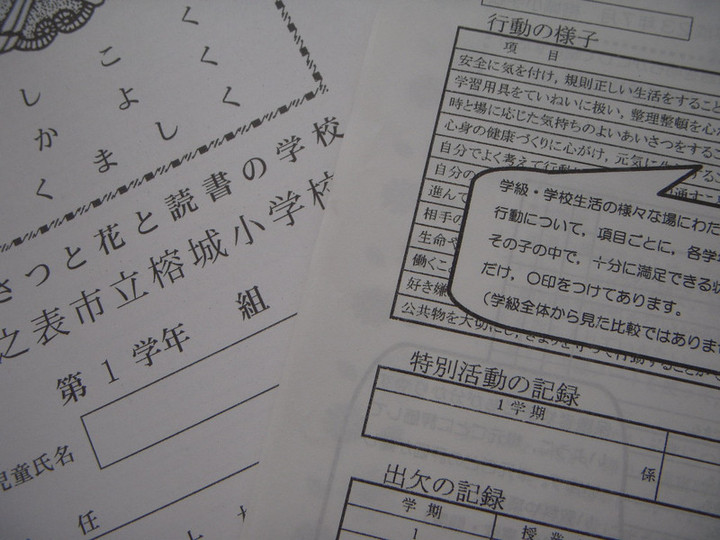 くくく
こよしく
しかく
まし
さつと花と読書の学校
之表市立榕城小学校
第1学年 組
児童氏名
任
行動の様子
項 目
安全に気を付け,規則正しい生活をすること
学習用具をていねいに扱い,整理整頓を心
時と場に応じた気持ちのよいあいさつをするこ
心身の健康づくりに心がけ,元気に
自分でよく考えて行動
自分の
進んで
相手の
生命や
働くこ
好き嫌
公共物を大切にし,きまりを守って行動することが
学級・学校生活の様々な場にわた
行動について,項目ごとに,各学
その子の中で,十分に満足できる
だけ,〇印をつけてあります。
(学級全体から見た比較ではありま
特別活動の記録
1学期
係
出欠の記録
学 期
授 業
1